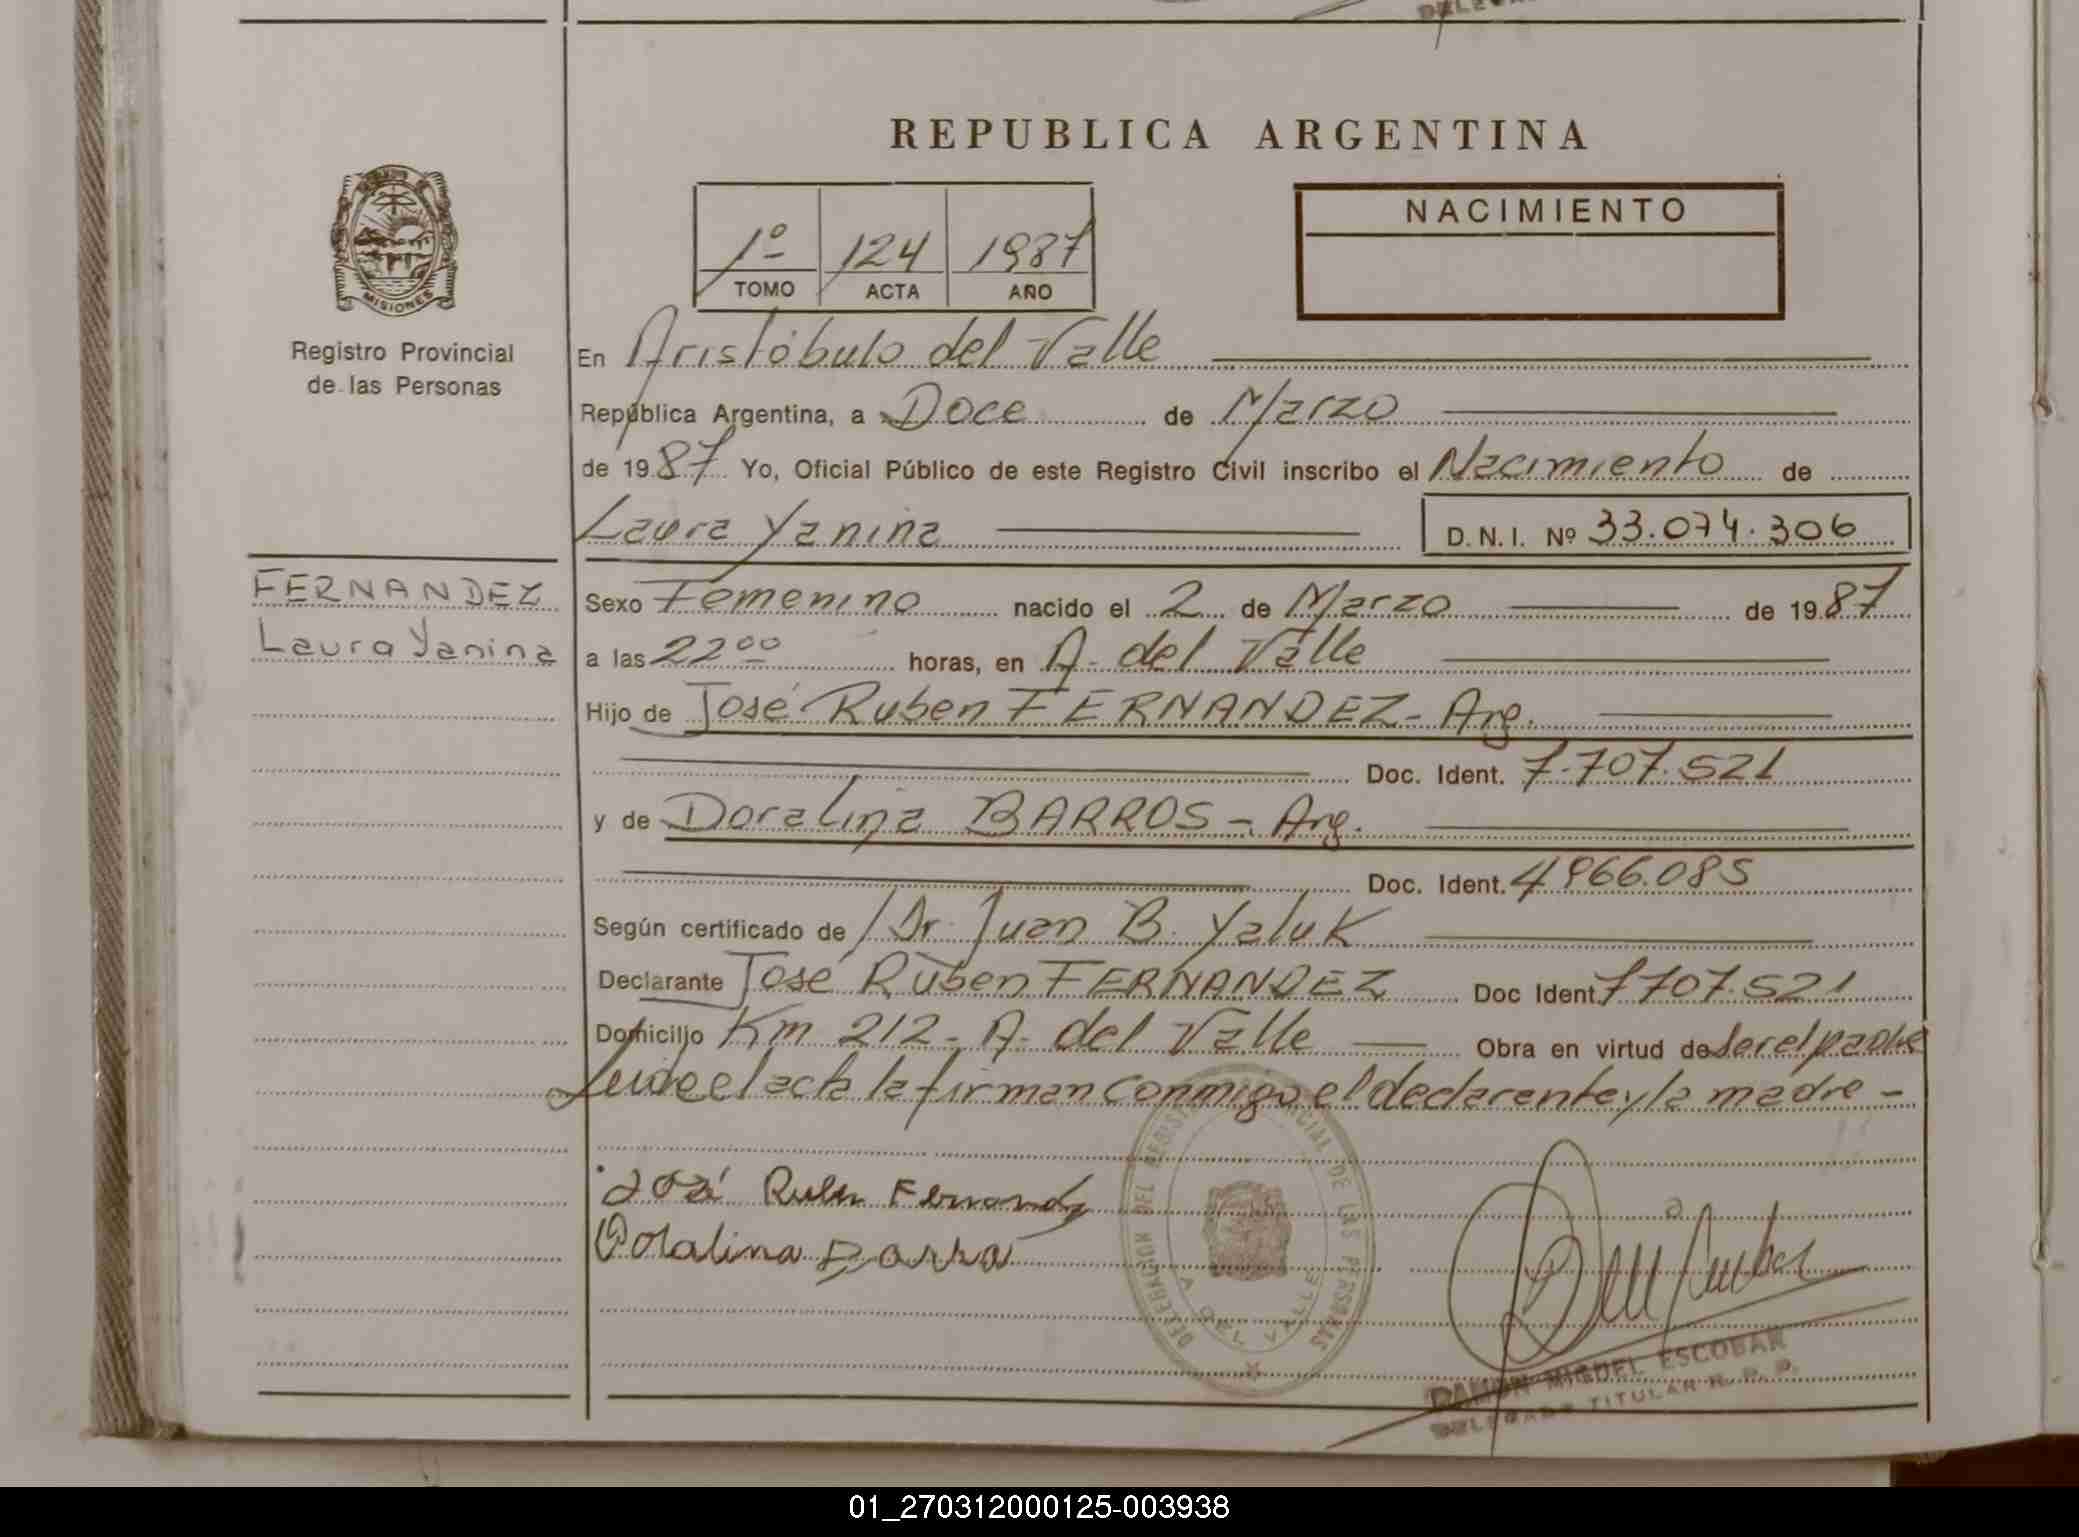 REPUBLICA ARGENTINA
NACIMIENTO
1º 124 1987
TOMO ACTA AÑO
MISIONES
Registro Provincial
de las Personas
En Aristóbulo del Valle
República Argentina, a Doce de Marzo
de 1987 Yo, Oficial Público de este Registro Civil inscribo el Nacimiento de
Laura Yanina D.N.I. Nº 33.074.306
FERNANDEZ
Laura Yanina
Sexo Femenino nacido el 2 de Marzo de 1987
a las 22 00 horas, en A. del Valle
Hijo de José Ruben FERNANDEZ - Arg.
Doc. Ident. 7.707.521
y de Doralina BARROS - Arg.
Doc. Ident. 4966.085
Según certificado de Dr. Juan B. Yaluk
Declarante José Ruben FERNANDEZ Doc Ident 7707.521
Domicilio Km 212 - A. del Valle Obra en virtud de ser el padre
Leida el acta la firman conmigo el declarante y la madre -
José Ruben Fernandez
Doralina Barro
DELEGACION DEL REGISTRO PROVINCIAL DE LAS PERSONAS
A. DEL VALLE
RAMON MIGUEL ESCOBAR
DELEGADO TITULAR R. P. P.
01_270312000125-003938